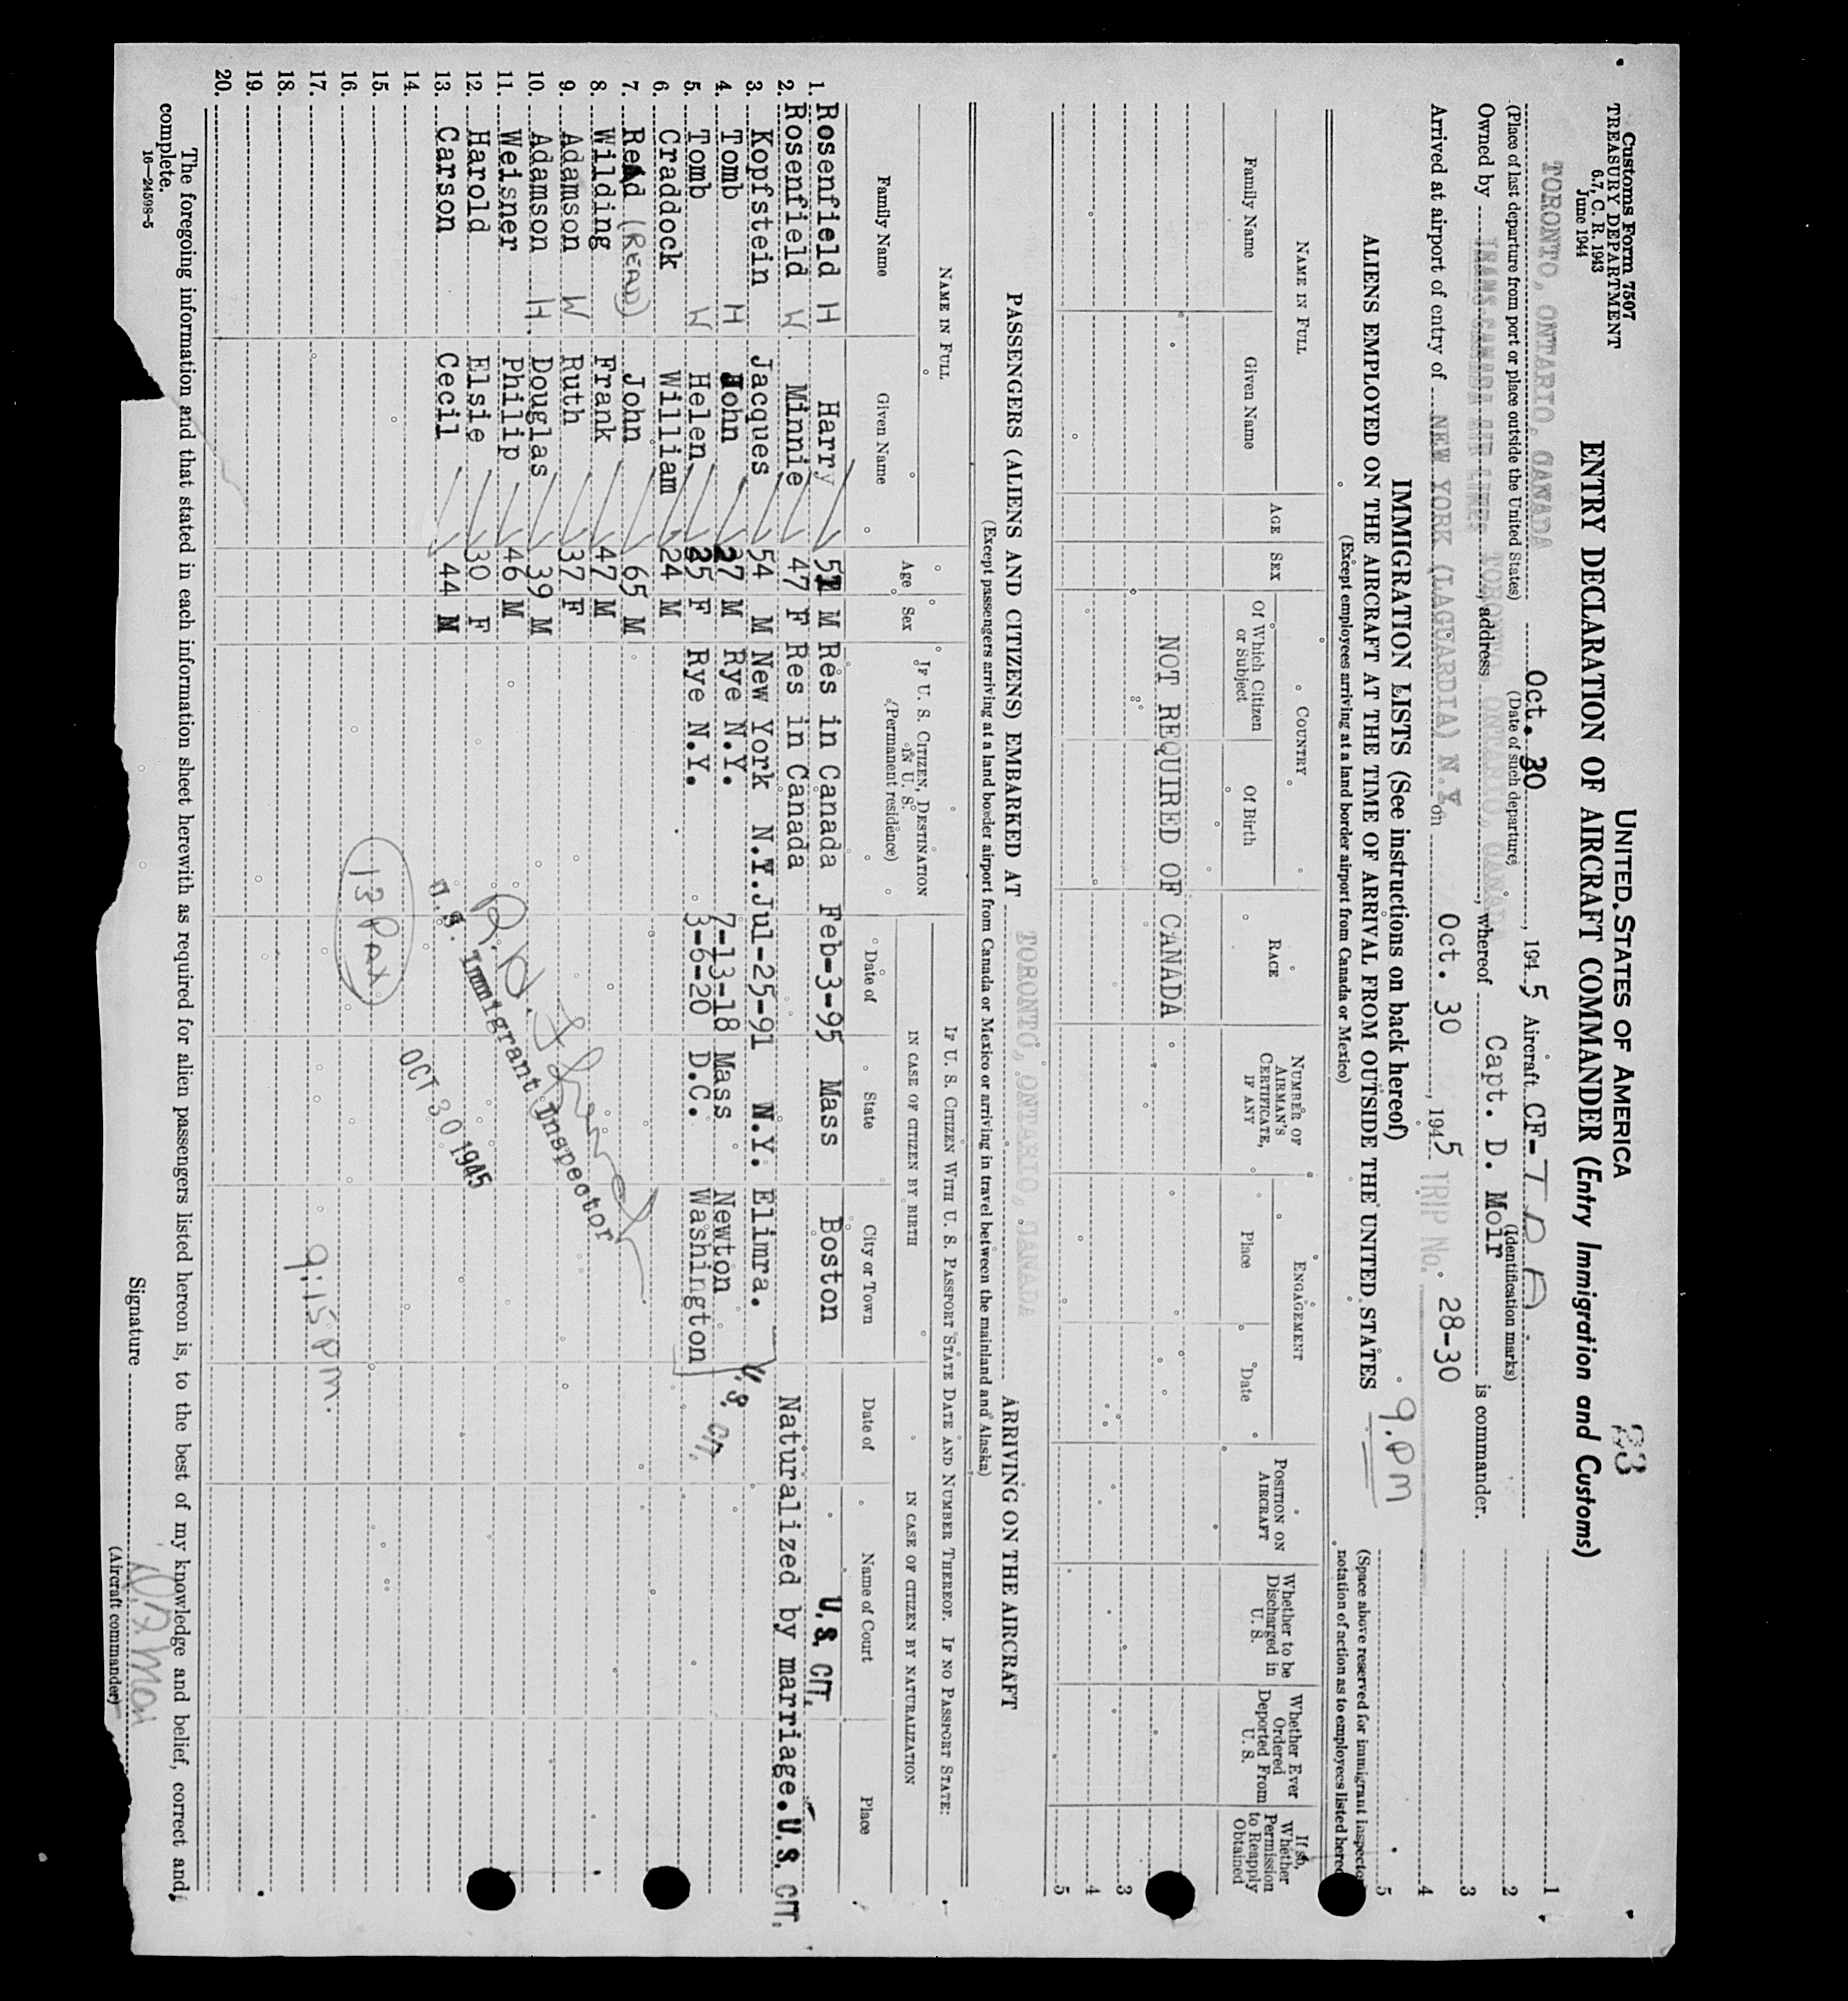 Customs Form 7507
TREASURY DEPARTMENT
6.7, C. R. 1943
June 1944
UNITED STATES OF AMERICA
33
ENTRY DECLARATION OF AIRCRAFT COMMANDER (Entry Immigration and Customs)
TORONTO, ONTARIO, CANADA Oct. 30, 1945 Aircraft CF-T
(Place of last departure from port or place outside the United States) (Date of such departure) (Identification marks)
Owned by TRANS-CANADA AIR LINES, address TORONTO, ONTARIO, CANADA, whereof Capt. D. Moir is commander.
Arrived at airport of entry of NEW YORK (LAGUARDIA) N.Y. on Oct. 30, 1945 TRIP No. 28-30
9.PM
IMMIGRATION LISTS (See instructions on back hereof)
ALIENS EMPLOYED ON THE AIRCRAFT AT THE TIME OF ARRIVAL FROM OUTSIDE THE UNITED STATES
(Except employees arriving at a land border airport from Canada or Mexico)
1
2
3
4
5
(Space above reserved for immigrant inspector
notation of action as to employees listed
NAME IN FULL
Family Name Given Name
AGE SEX
COUNTRY
Of Which Citizen or Subject Of Birth
RACE
NUMBER OF AIRMAN'S CERTIFICATE, IF ANY
ENGAGEMENT
Place Date
POSITION ON AIRCRAFT
Whether to be Discharged in U. S.
Whether Ever Ordered Deported From U. S.
If so, Whether Permission to Reapply Obtained
NOT REQUIRED OF CANADA
3
4
5
PASSENGERS (ALIENS AND CITIZENS) EMBARKED AT TORONTO, ONTARIO, CANADA ARRIVING ON THE AIRCRAFT
(Except passengers arriving at a land border airport from Canada or Mexico or arriving in travel between the mainland and Alaska)
NAME IN FULL
Family Name Given Name
Age Sex
IF U. S. CITIZEN, DESTINATION IN U. S.
(Permanent residence)
IF U. S. CITIZEN WITH U. S. PASSPORT STATE DATE AND NUMBER THEREOF. IF NO PASSPORT STATE:
IN CASE OF CITIZEN BY BIRTH
Date of State City or Town
IN CASE OF CITIZEN BY NATURALIZATION
Date of Name of Court Place
1. Rosenfield H Harry M Res in Canada Feb-3-95 Mass Boston U. S. CIT.
2. Rosenfield W. Minnie 47 F Res in Canada Naturalized by marriage. U. S. CIT.
3. Kopfstein Jacques 54 M New York N.Y. Jul-25-91 N.Y. Elimra.
4. Tomb H John 27 M Rye N.Y. 7-13-18 Mass Newton U.S. CIT.
5. Tomb W Helen 25 F Rye N.Y. 3-6-20 D.C. Washington
6. Craddock William 24 M
7. Read (READ) John 65 M
8. Wilding Frank 47 M
9. Adamson W Ruth 37 F
10. Adamson H. Douglas 39 M
11. Weisner Philip 46 M
12. Harold Elsie 30 F
13. Carson Cecil 44 M
14.
15.
16.
17.
18.
19.
20.
U. S. Immigrant Inspector
OCT 30 1945
13 PAX
9:15 PM.
The foregoing information and that stated in each information sheet herewith as required for alien passengers listed hereon is, to the best of my knowledge and belief, correct and
complete.
16—24598-5
Signature
(Aircraft commander)